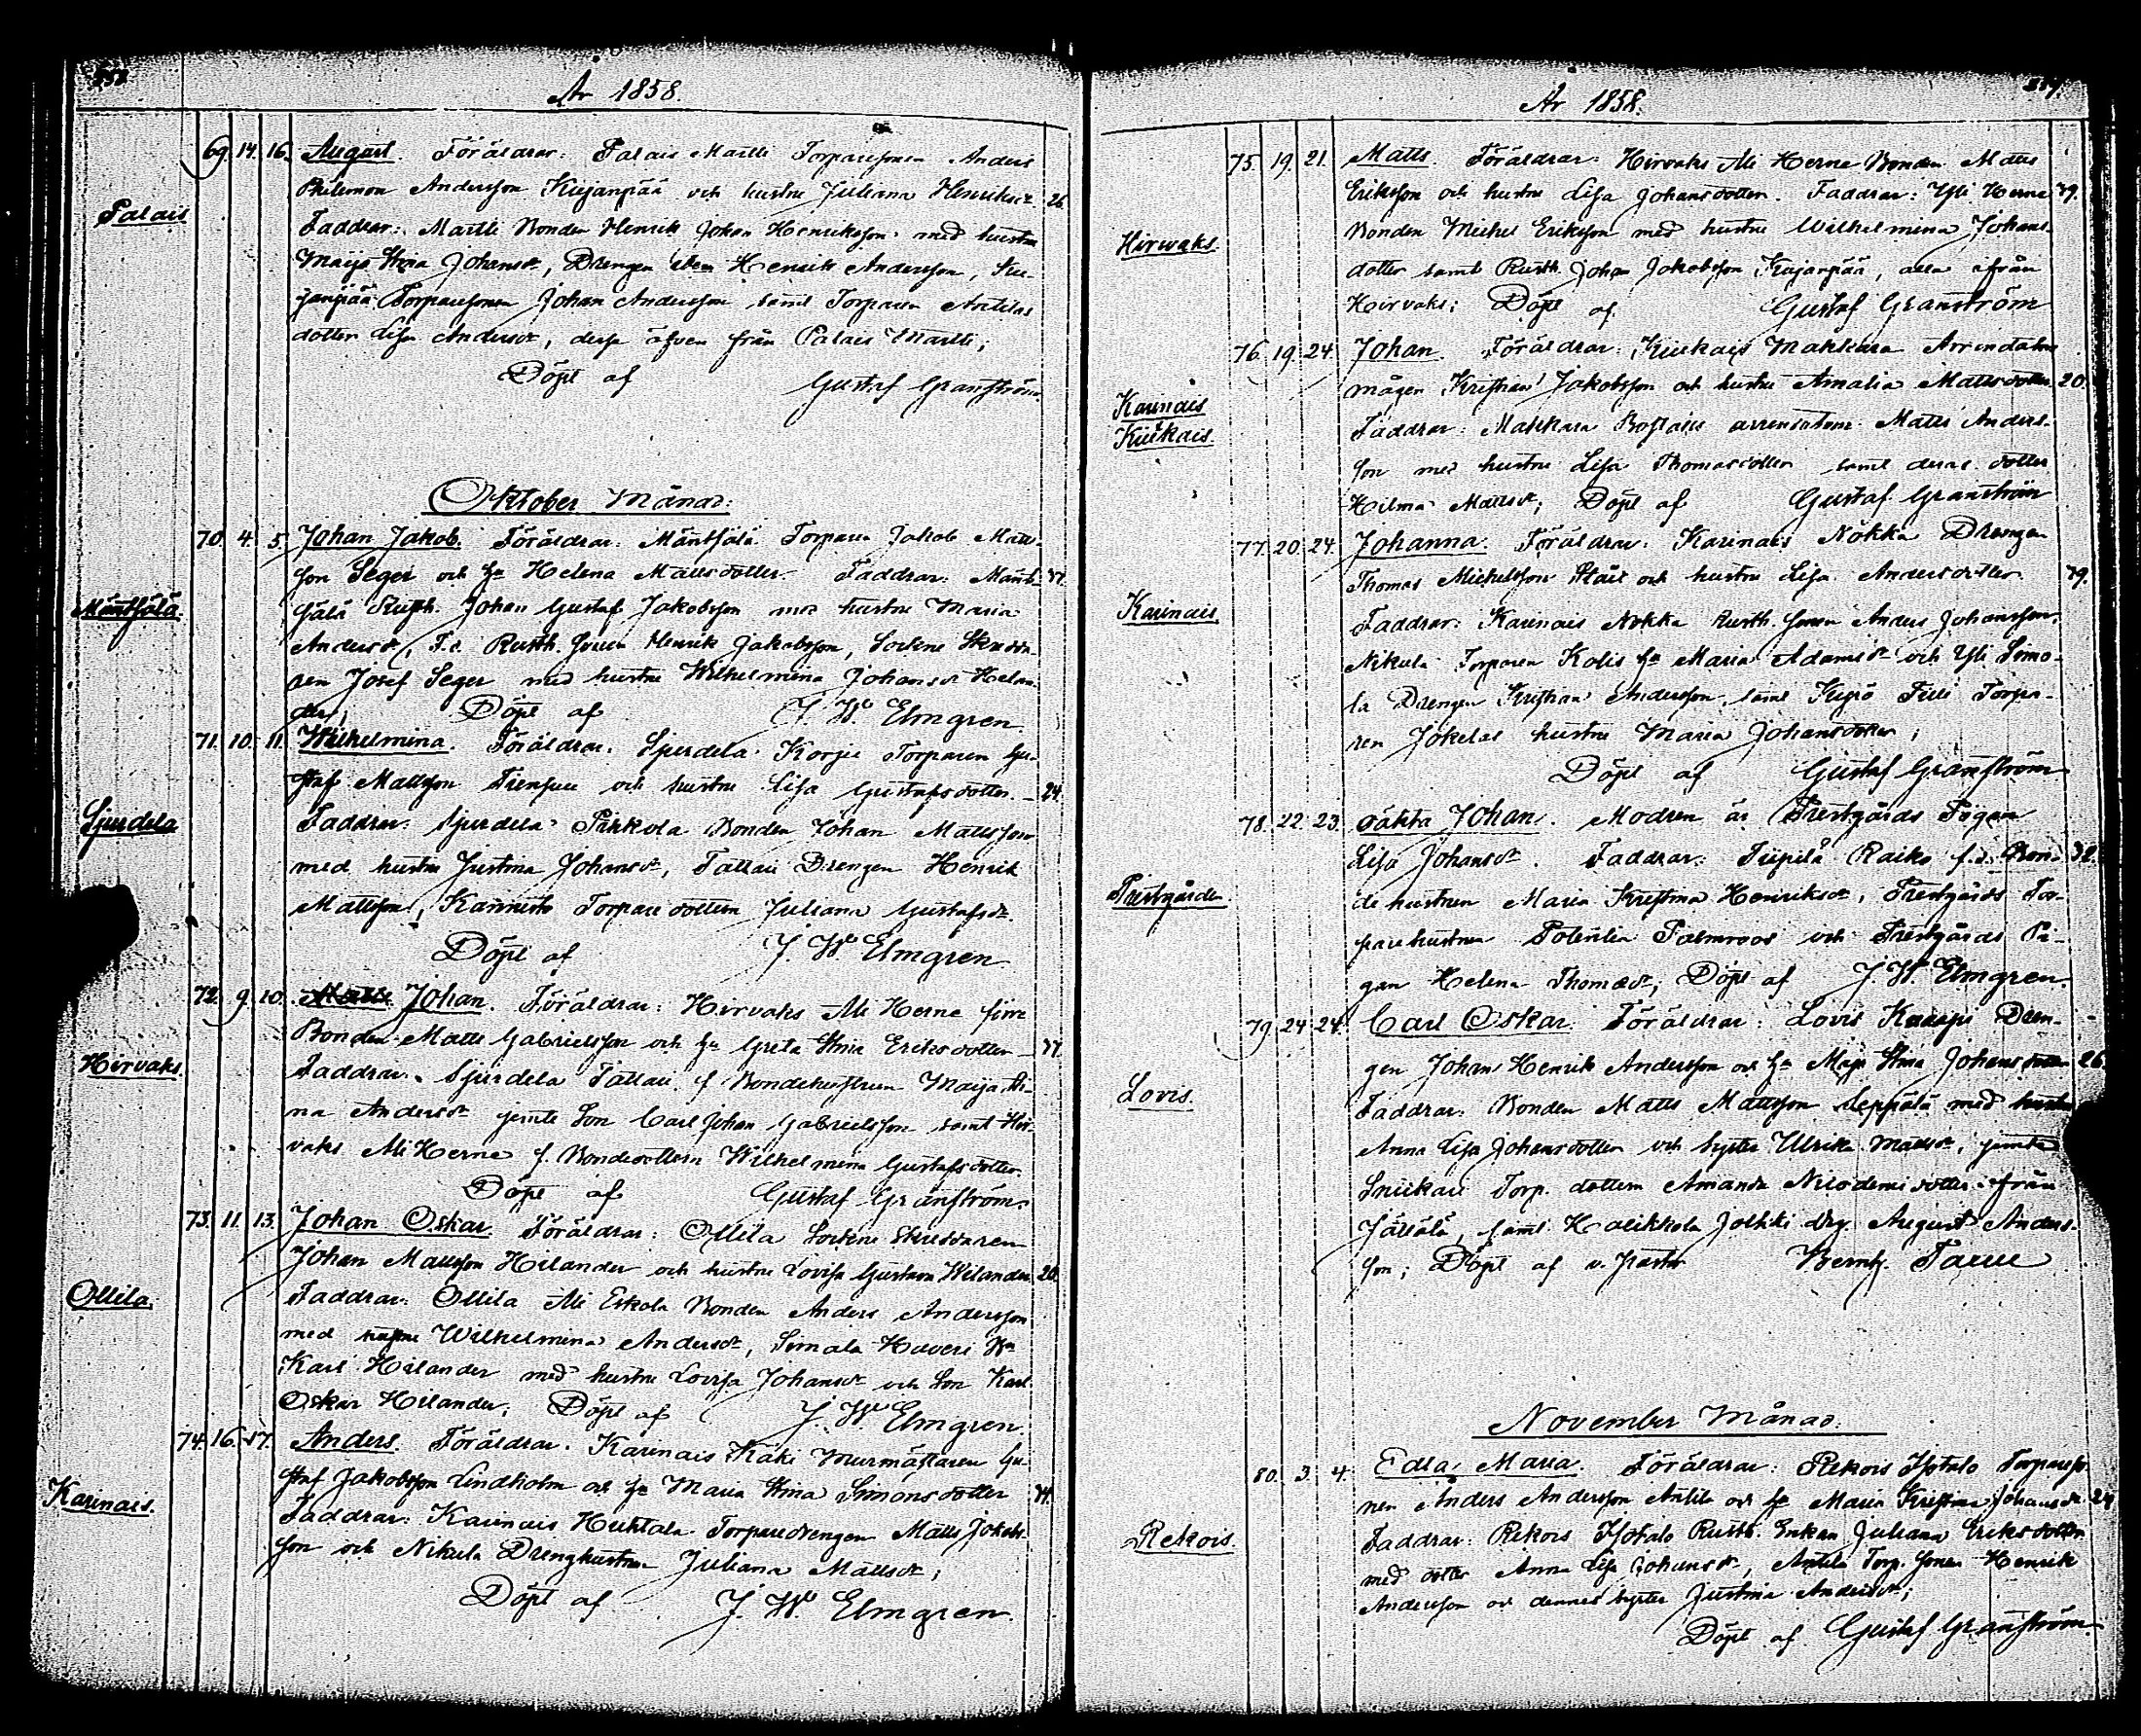 År 1858.
Palais
69. 14. 16. August. Föräldrar: Palais Martti Torparesonen Anders
Philemon Andersson Kujanpää och hustru Juliana Henriksdr 26.
Faddrar: Martti Bonden Henrik Johan Henriksson med hustru
Maija Stina Johansdr, Drengen Henrik Andersson, Ku-
janpää Torparesonen Johan Andersson samt Torparen Anttilas
dotter Lisa Andersdr, dessa äfven från Palais Martti;
Döpt af Gustaf Granström.
Oktober Månad:
Mäntsälä.
70. 4. 5. Johan Jakob. Föräldrar: Mäntsälä Torparen Jakob Matts-
son Seger och Hu Helena Mattsdotter. Faddrar: Mänt- 37.
sälä Rusth. Johan Gustaf Jakobsson med hustru Maria
Andersdr, F.d. Rusth. Sonen Henrik Jakobsson, Sockne Skredda-
ren Josef Seger med hustru Wilhelmina Johansdr Helan-
der; Döpt af J. W. Elmgren.
Sjurdela
71. 10. 11. Wilhelmina. Föräldrar: Sjurdela Korpi Torparen Gu-
staf Mattsson och hustru Lisa Gustafsdotter. 24.
Faddrar: Sjurdela Pirkola Bonden Johan Mattsson
med hustru Justina Johansdr, Tattari Drengen Henrik
Mattsson, Kannisto Torpare dottern Juliana Gustafsdr.
Döpt af J. W. Elmgren.
Hirvaks.
72. 9. 10. Johan. Föräldrar: Hirvaks Ali Herne förre
Bonden Matts Gabrielsson och Hu Greta Stina Eriksdotter 37.
Faddrar: Sjurdela Tattari f Bondehustrun Maija Sti-
na Andersdr jemte Son Carl Johan Gabrielsson samt Hir-
vaks Ali Herne f. Bondedottern Wilhelmina Gustafsdotter.
Döpt af Gustaf Granström.
Ollila.
73. 11. 13. Johan Oskar. Föräldrar: Ollila Sockne Skreddaren
Johan Mattsson Hilander och hustru Lovisa Gustava Wilander 20.
Faddrar: Ollila Ali Eskola Bonden Anders Andersson
med hustru Wilhelmina Andersdr, Simala Haveri
Karl Hilander med hustru Lovisa Johansdr och Son Karl
Oskar Hilander; Döpt af J. W. Elmgren.
Karinais.
74. 16. 17. Anders. Föräldrar: Karinais Käki Murmästaren Gu-
staf Jakobsson Lindholm och Hu Maria Stina Simonsdotter
Faddrar: Karinais Huhtala Torparedrengen Matts Jakobs-
son och Nikula Drenghustrun Juliana Mattsdr;
Döpt af J. W. Elmgren.
År 1858.
Hirwaks.
75. 19. 21. Matts. Föräldrar: Hirvaks Ali Herne Bonden Matts
Eriksson och hustru Lisa Johansdotter. Faddrar: Yli Herne 39.
Bonden Michel Eriksson med hustru Wilhelmina Johans-
dotter samt Rusth. Johan Jakobsson Kujanpää, alla ifrån
Hirvaks; Döpt af Gustaf Granström
Karinais
Kiikais.
76. 19. 24. Johan. Föräldrar: Kiikais Makkara Arrendators
mågen Kristian Jakobsson och hustru Amalia Mattsdotter. 20.
Faddrar: Makkara Boställs arrendatorn Matts Anders-
son med hustru Lisa Thomasdotter samt deras dotter
Hilma Mattsdr; Döpt af Gustaf Granström
Karinais.
77. 20. 24. Johanna. Föräldrar: Karinais Nokka Drengen
Thomas Michelsson och hustru Lisa Andersdotter. 39.
Faddrar: Karinais Nokka Rusth. sonen Anders Johansson,
Nikula Torparen Kolis Hu Maria Adamsdr och Yli Simo-
la Drengen Kristian Andersson, samt Kyrö Torpa-
ren Jokelas hustru Maria Johansdotter;
Döpt af Gustaf Granström
Prestgården.
78. 22. 23. oäkta Johan. Modren är Prestgårds Pigan
Lisa Johansdr. Faddrar: Tiipilä Raiko f.d. Bon- 32.
de hustrun Maria Kristina Henriksdr, Prestgårds Tor-
parehustrun Palmroos och Prestgårds Pi-
gan Helena Thomasdr; Döpt af J. W. Elmgren.
Lovis.
79. 24. 24. Carl Oskar. Föräldrar: Lovis Dren-
gen Johan Henrik Andersson och Hu Maja Stina Johansdotter 26.
Faddrar: Bonden Matts Mattsson Leppälä med hustru
Anna Lisa Johansdotter och Syster Ulrika Mattsdr, jemte
Sniikari Torp. dottern Amanda Nicodemidotter från
Jällälä, samt Halikkola Jolkki dräng August Anders-
son; Döpt af v. Pastor
November Månad.
Rekois.
80. 3. 4. Edla Maria. Föräldrar: Rekois Isotalo Torpareso-
nen Anders Andersson Antila och Hu Maria Kristina Johansdr 24
Faddrar: Rekois Isotalo Rusth. Enkan Juliana Eriksdotter
med dotter Anna Lisa Johansdr, Antila Torp. Sonen Henrik
Andersson och dennes syster Justina Andersdr;
Döpt af Gustaf Granström.